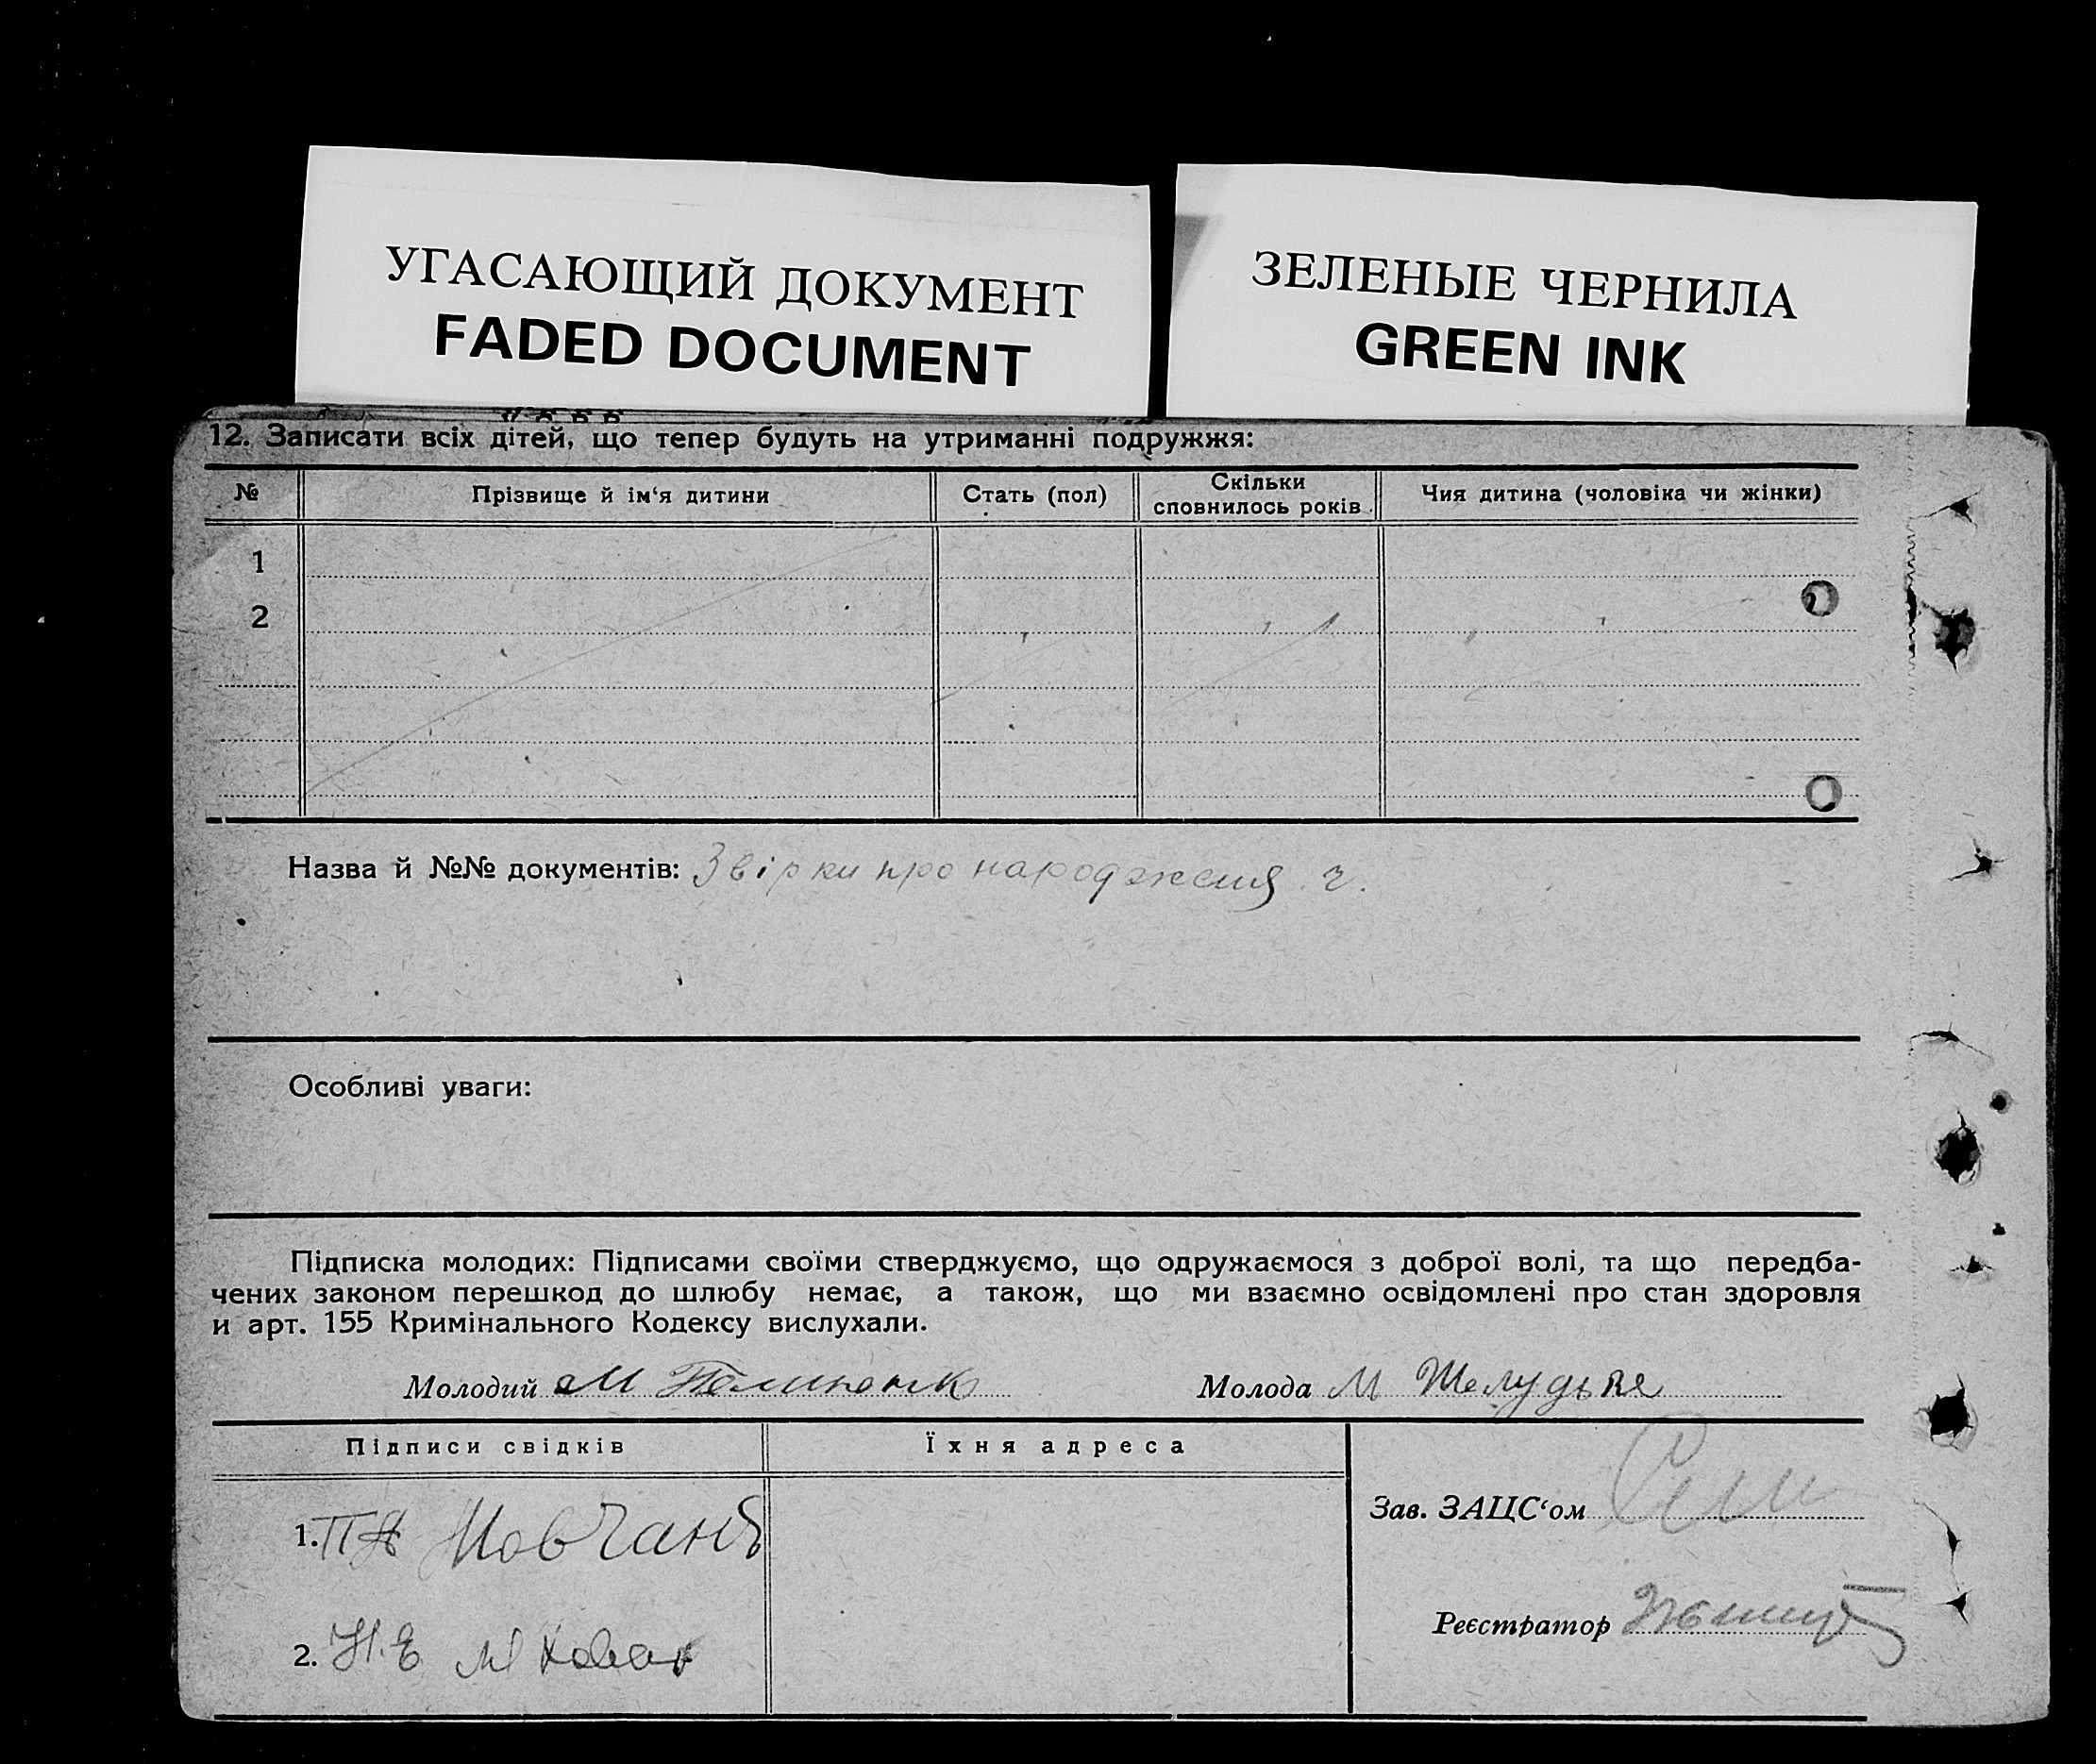 УГАСАЮЩИЙ ДОКУМЕНТ
FADED DOCUMENT
ЗЕЛЕНЫЕ ЧЕРНИЛА
GREEN INK
12. Записати всіх дітей, що тепер будуть на утриманні подружжя:
№ Прізвище й ім‘я дитини Стать (пол) Скільки сповнилось років Чия дитина (чоловіка чи жінки)
1
2
Назва й №№ документів: Звірки про народження
Особливі уваги:
Підписка молодих: Підписами своїми стверджуємо, що одружаємося з доброї волі, та що передба-
чених законом перешкод до шлюбу немає, а також, що ми взаємно освідомлені про стан здоровля
и арт. 155 Кримінального Кодексу вислухали.
Молодий М Молода М Шелудько
Підписи свідків Їхня адреса
Зав. ЗАЦС‘ом
1. ПА Мовчан
Реєстратор
2. Н.Е